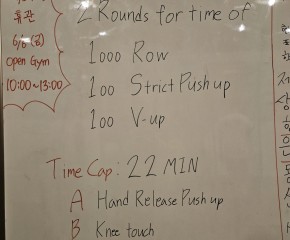 휴관
6/6 (금)
Open Gym
10:00~13:00
2 Rounds for time of
1000 Row
100 Strict Push up
100 V-up
Time Cap: 22 MIN
A Hand Release Push up
B Knee touch